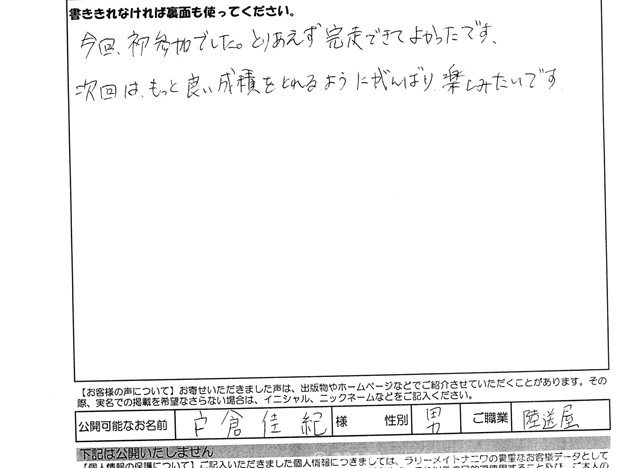 書ききれなければ裏面も使ってください。
今回、初参加でした。とりあえず完走できてよかったです、
次回は、もっと良い成績をとれるようにがんばり、楽しみたいです.
【お客様の声について】お寄せいただきました声は、出版物やホームページなどでご紹介させていただくことがあります。その
際、実名での掲載を希望なさらない場合は、イニシャル、ニックネームなどをご記入ください。
公開可能なお名前 戸倉佳紀 様 性別 男 ご職業 陸送屋
下記は公開いたしません
【個人情報の保護について】ご記入いただきました個人情報につきましては、ラリーメイトナニワの貴重なお客様データとして